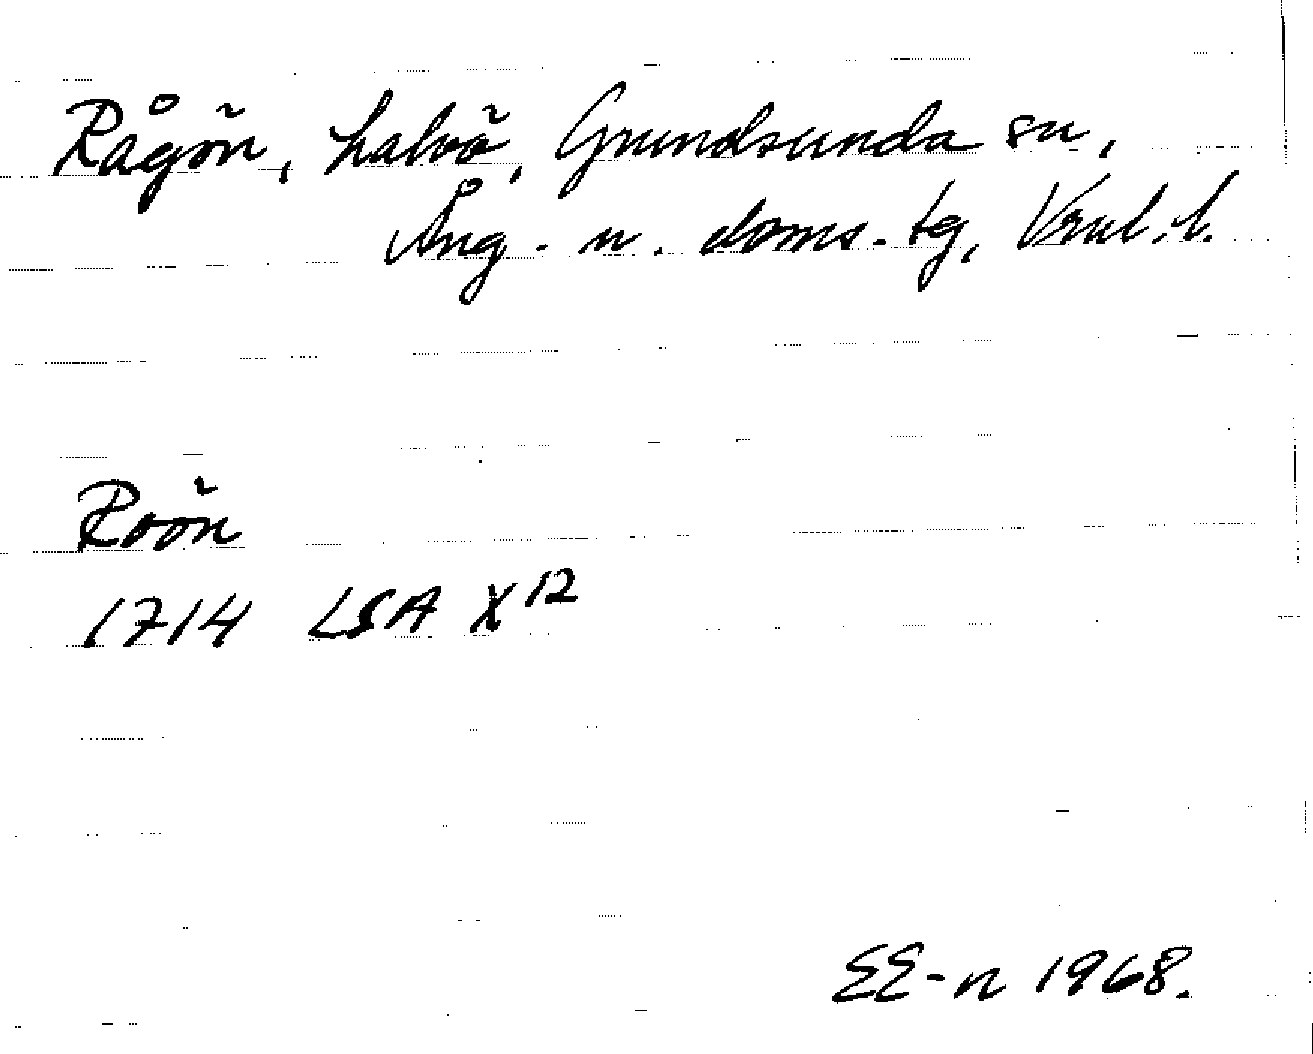 Rågön, halvö, Grundsunda sn,
Ång. n. doms. tg, Vnl. l.
Roön
1714 LSA X12
EE-n 1968.